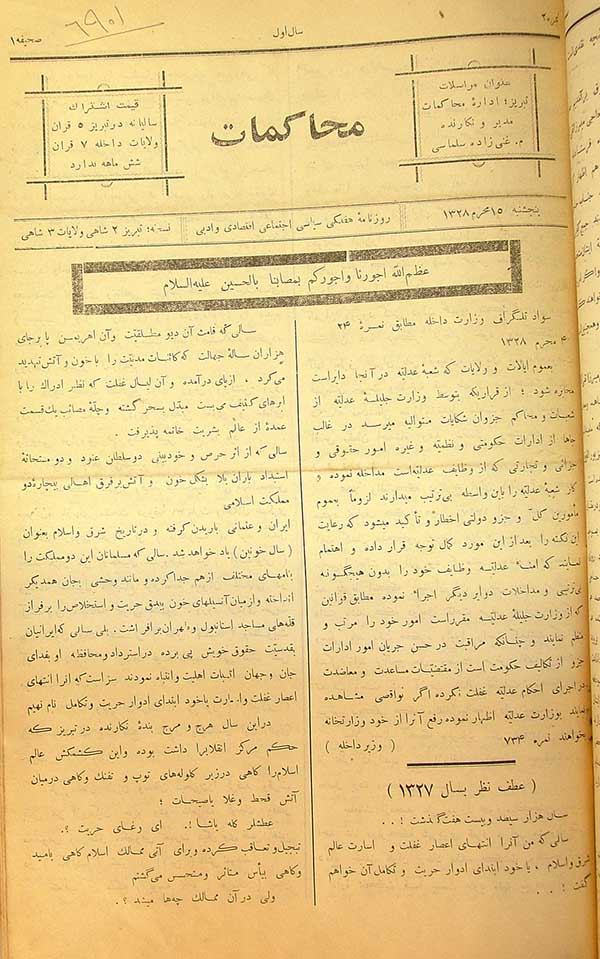 ۶۹۰۱
سال اول
صحیفه ۱
عنوان مراسلات
تبریز؛ ادارهٔ محاکمات
مدیر و نگارنده
م. غنی زاده سلماسی
محاکمات
قیمت اشتراك
سالیانه در تبریز ۵ قران
ولایات داخله ۷ قران
شش ماهه ندارد
پنجشنبه ۱۵ محرم ۱۳۲۸
روزنامهٔ هفتگی سیاسی اجتماعی اقتصادی و ادبی
نسخه؛ تبریز ۲ شاهی ولایات ۳ شاهی
عظم الله اجورنا و اجورکم بمصابنا بالحسین علیه السلام
سواد تلگراف وزارت داخله مطابق نمرهٔ ۲۴
۴ محرم ۱۳۲۸
بعموم ایالات و ولایات که شعبهٔ عدلیّه در آنجا دایراست
مخابره شود؛ از قراریکه بتوسط وزارت جلیلهٔ عدلیّه از
شعبات و محاکم جزو آن شکایات متوالیه میرسد در غالب
جاها از ادارات حکومتی و نظمیّه و غیره امور حقوقی و
جزائی و تجارتی که از وظایف عدلیّه است مداخله نموده و
کار شعبهٔ عدلیّه را باین واسطه بی‌ترتیب میدارند لزوماً بعموم
مأمورین کل و جزو دولتی اخطار و تأکید میشود که رعایت
این نکته را بعد از این مورد کمال توجه قرار داده و اهتمام
نمایند که امناء عدلیّه وظایف خود را بدون هیچگونه
بی‌ترتیبی و مداخلات دوایر دیگر اجراء نموده مطابق قوانین
که از وزارت جلیلهٔ عدلیّه مقرر است امور خود را مرتب و
منظم نمایند و چنانکه مراقبت در حسن جریان امور ادارات
جزو از تکالیف حکومت است از مقتضیات مساعدت و معاضدت
در اجرای احکام عدلیّه غفلت نکرده اگر نواقصی مشاهده
نمایند بوزارت عدلیّه اظهار نموده رفع آنرا از خود وزارتخانه
بخواهند نمره ۷۳۴ ( وزیر داخله )
( عطف نظر بسال ۱۳۲۷ )
سال هزار سیصد و بیست هفت گذشت ! . .
سالی که من آنرا انتهای اعصار غفلت و اسارت عالم
شرق و اسلام، یا خود ابتدای ادوار حریت و تکامل آن خواهم
گفت ! . .
سالی که قامت آن دیو مطلقیّت و آن اهریمن پا برجای
هزاران سالهٔ جهالت که کائنات مدنیّت را با خون و آتش تهدید
می‌کرد . از پای درآمده و آن لیال غفلت که نظر ادراك را با
ابرهای کثیف می‌بست مبدّل بسحر گشته و جلّهٔ مصائب یك قسمت
عمده از عالم بشریت خاتمه پذیرفت .
سالی که از اثر حرص و خودبینی دو سلطان عنود و دو ستمخانهٔ
استبداد باران بلا بشکل خون و آتش بر فرق اهالی بیچارهٔ دو
مملکت اسلامی
ایران و عثمانی باریدن گرفته و در تاریخ شرق و اسلام بعنوان
(سال خونین) یاد خواهد شد . سالی که مسلمانان این دو مملکت را
بنامهای مختلف از هم جدا کرده و مانند وحشی بجان همدیگر
انداخته و از میان آن سیلهای خون بیدق حریت و استخلاص را بر فراز
قله‌های مساجد استانبول و طهران برافراشت . بلی سالی که ایرانیان
بقدسیّت حقوق خویش پی برده در استرداد و محافظهٔ او بفدای
جان و جهان اثبات اهلیت و انتباه نمودند سزاست که آنرا انتهای
اعصار غفلت و اسارت یا خود ابتدای ادوار حریت و تکامل نام نهیم
در این سال هرج و مرج بندهٔ نگارنده در تبریز که
حکم مرکز انقلاب را داشت بوده و این کشمکش عالم
اسلام را گاهی در زیر گلوله‌های توپ و تفنك و گاهی در میان
آتش قحط و غلا با صیحات ؛
عطشلر گله باشا !. ای رغای حریت ؟.
تبجیل و تعاقب کرده و برای آتی ممالك اسلام گاهی بامید
و گاهی بیأس متأثر و متحسن می‌گشتم
ولی در آن ممالك چه‌ها میشد ؟.